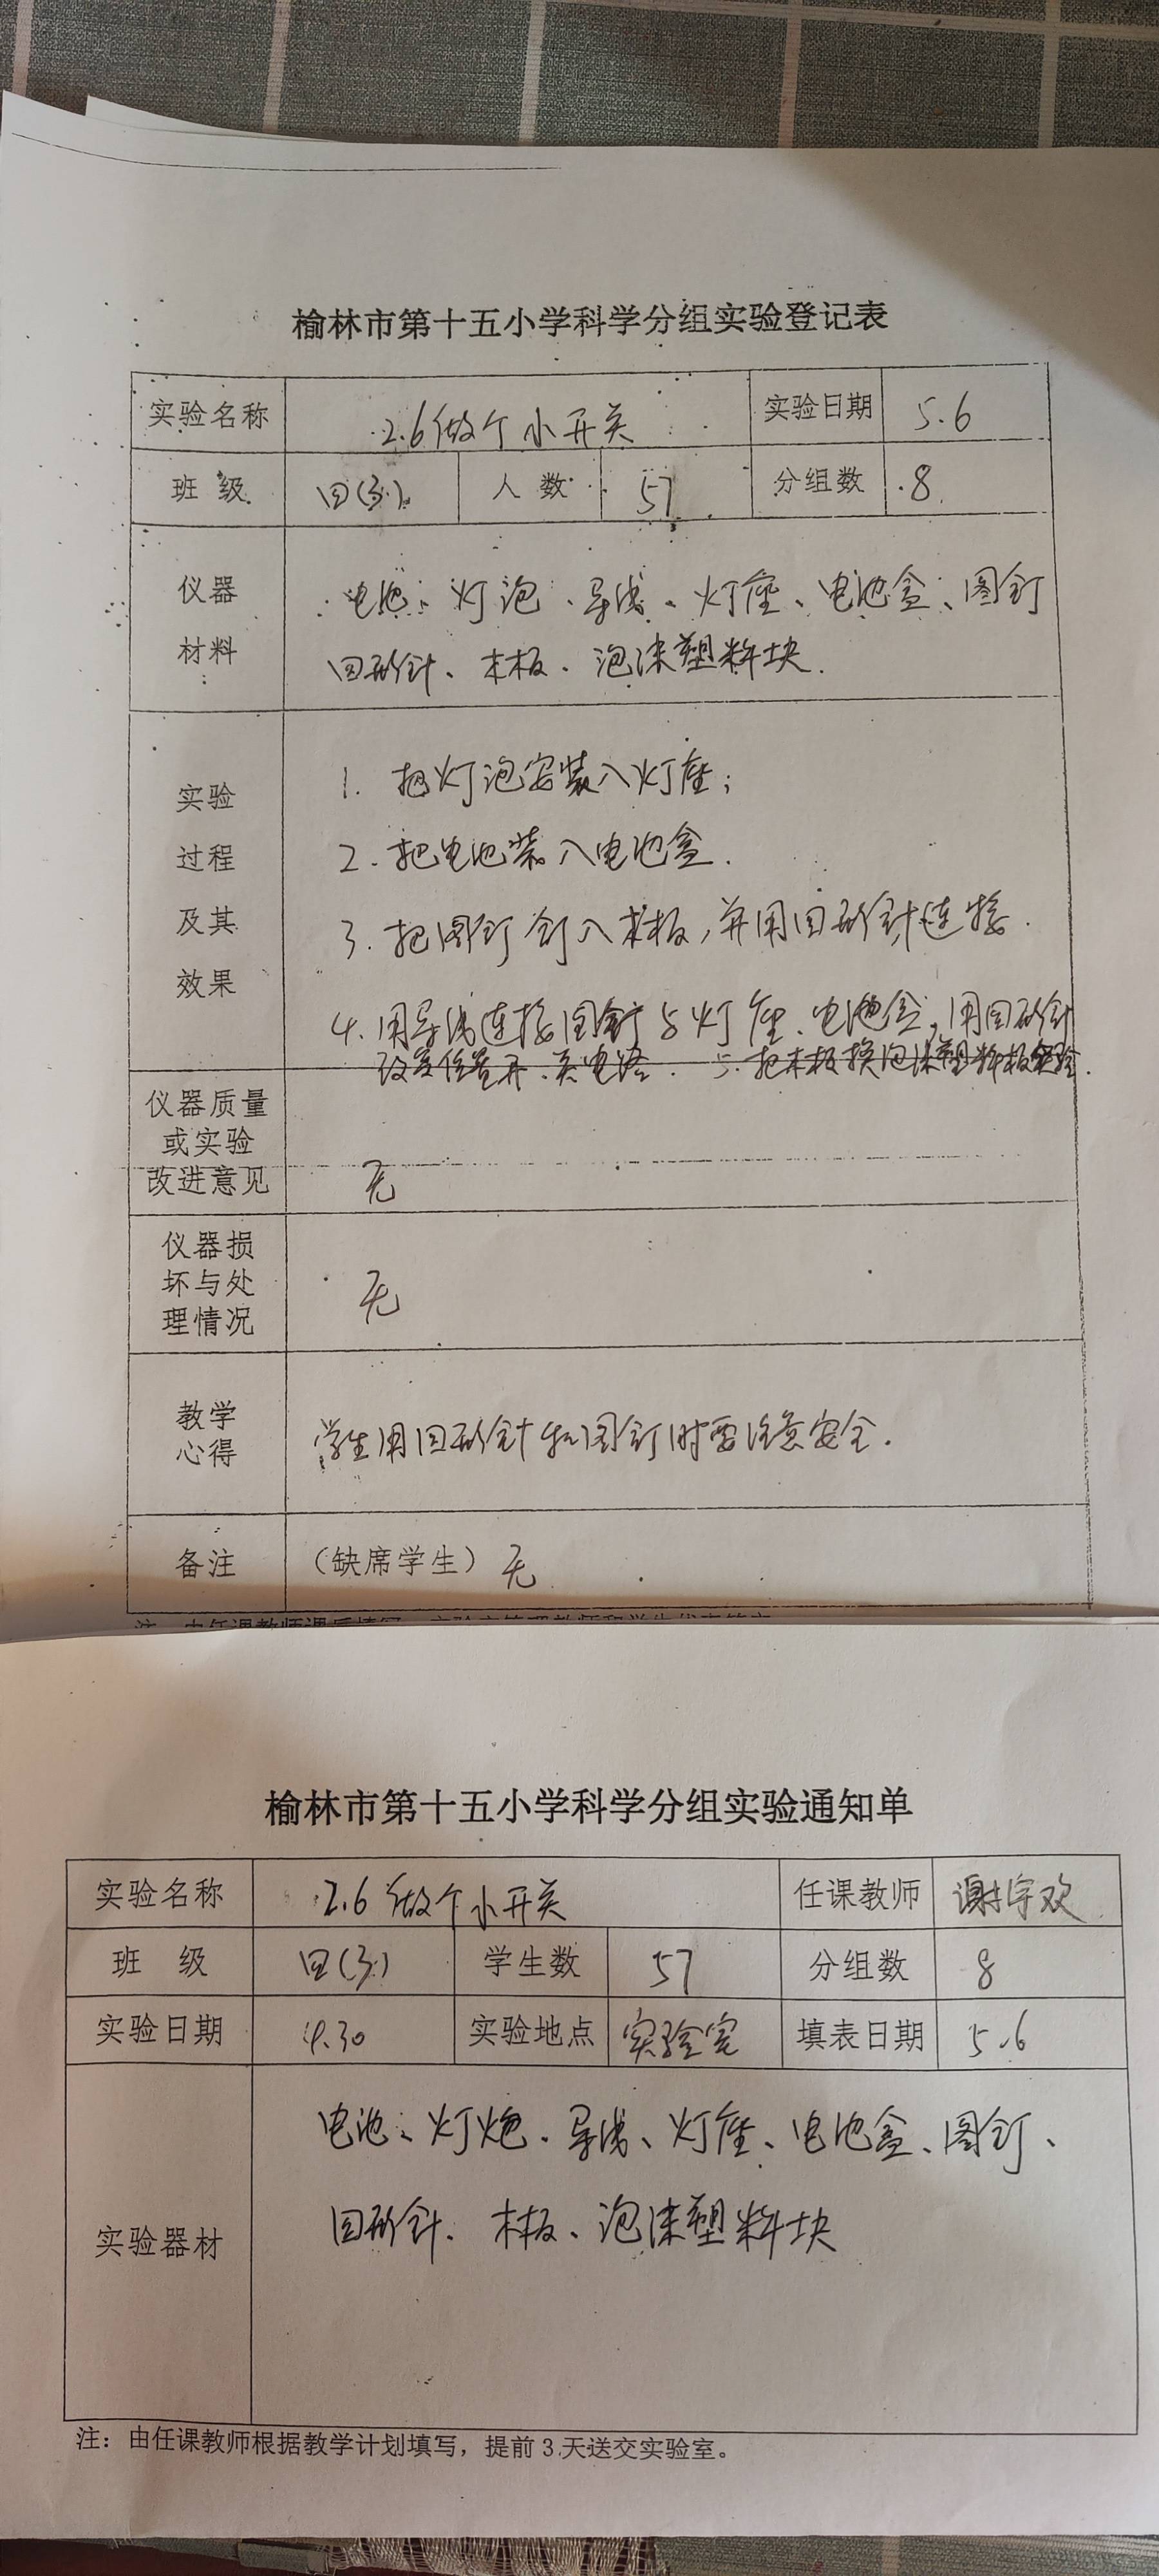 榆林市第十五小学科学分组实验登记表
实验名称 2.6做个小开关 实验日期 5.6
班 级 四(3) 人 数 57 分组数 8
仪器
材料
电池、灯泡、导线、灯座、电池盒、图钉
回形针、木板、泡沫塑料块.
实验
过程
及其
效果
1. 把灯泡安装入灯座;
2. 把电池装入电池盒.
3. 把图钉钉入木板,并用回形针连接.
4. 用导线连接图钉与灯座、电池盒,用回形针
改变位置开、关电路. 5. 把木板换泡沫塑料板实验.
仪器质量
或实验
改进意见
无
仪器损
坏与处
理情况
无
教学
心得
学生用回形针和图钉时要注意安全.
备注 (缺席学生) 无
榆林市第十五小学科学分组实验通知单
实验名称 2.6做个小开关 任课教师 谢宇欢
班 级 四(3) 学生数 57 分组数 8
实验日期 4.30 实验地点 实验室 填表日期 5.6
实验器材
电池、灯炮、导线、灯座、电池盒、图钉、
回形针、木板、泡沫塑料块
注:由任课教师根据教学计划填写,提前 3 天送交实验室。